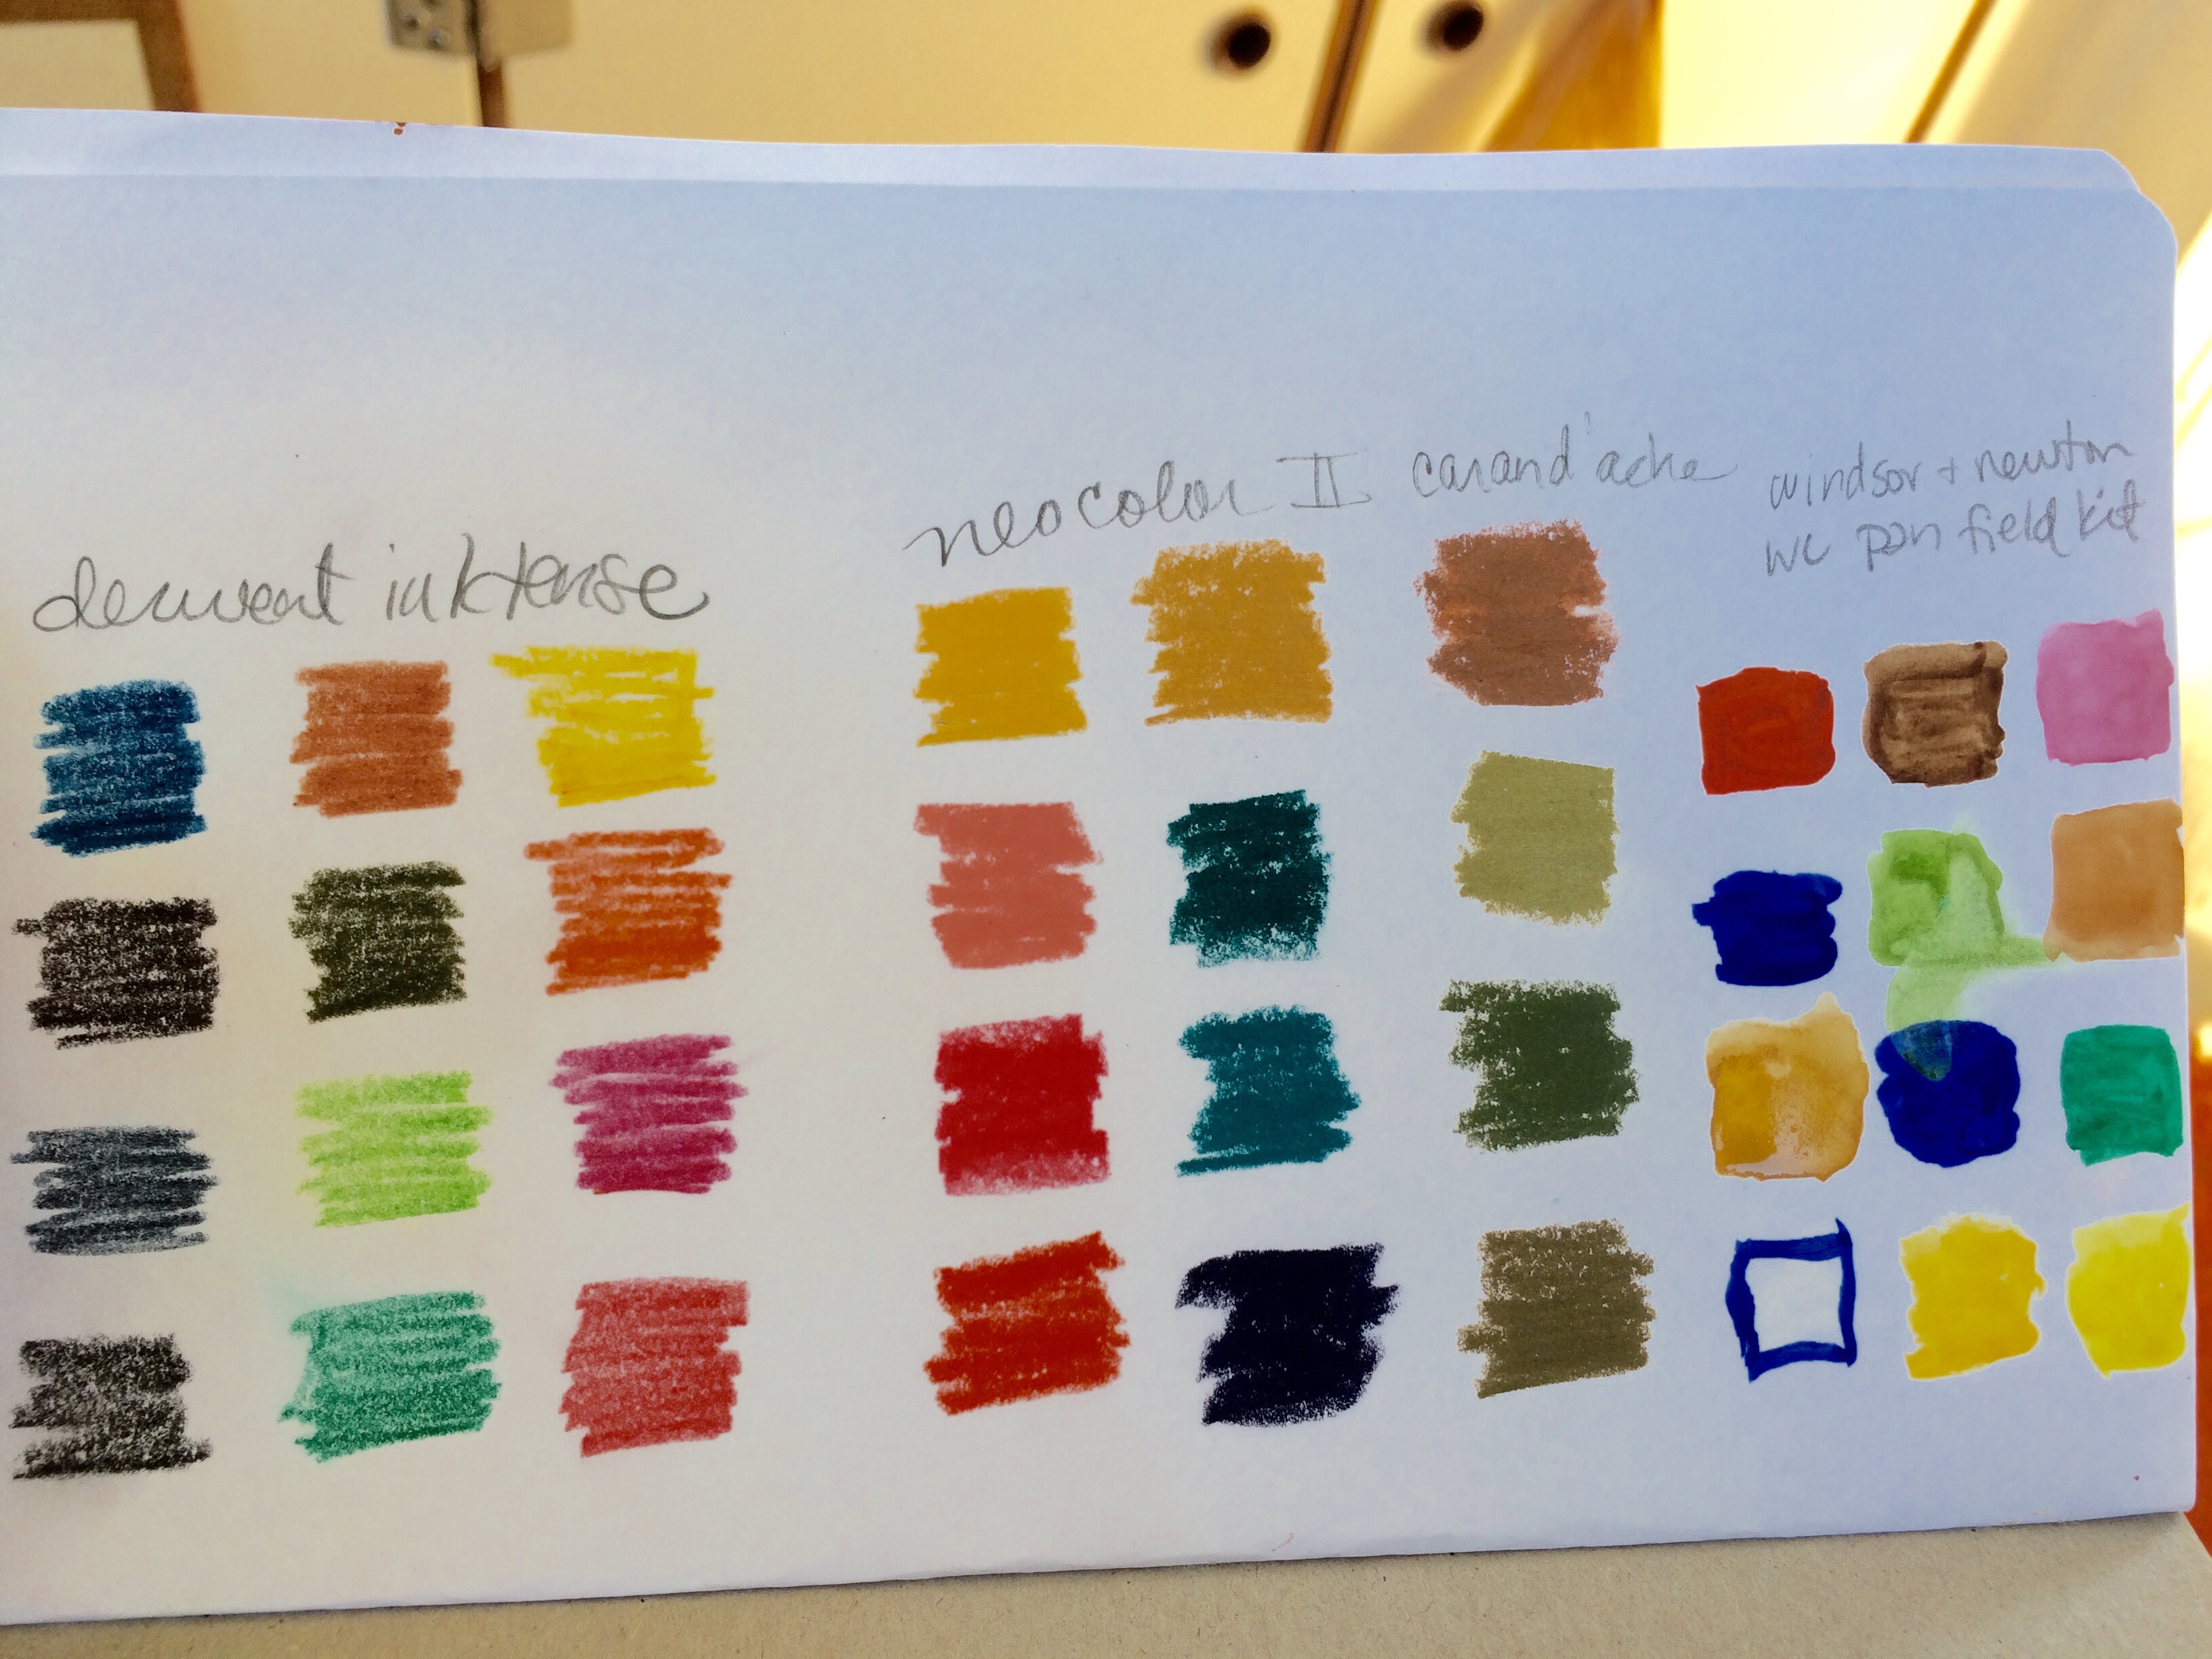 derwent inktense
neocolor II carand'ache
windsor + newton
wc pan field kit